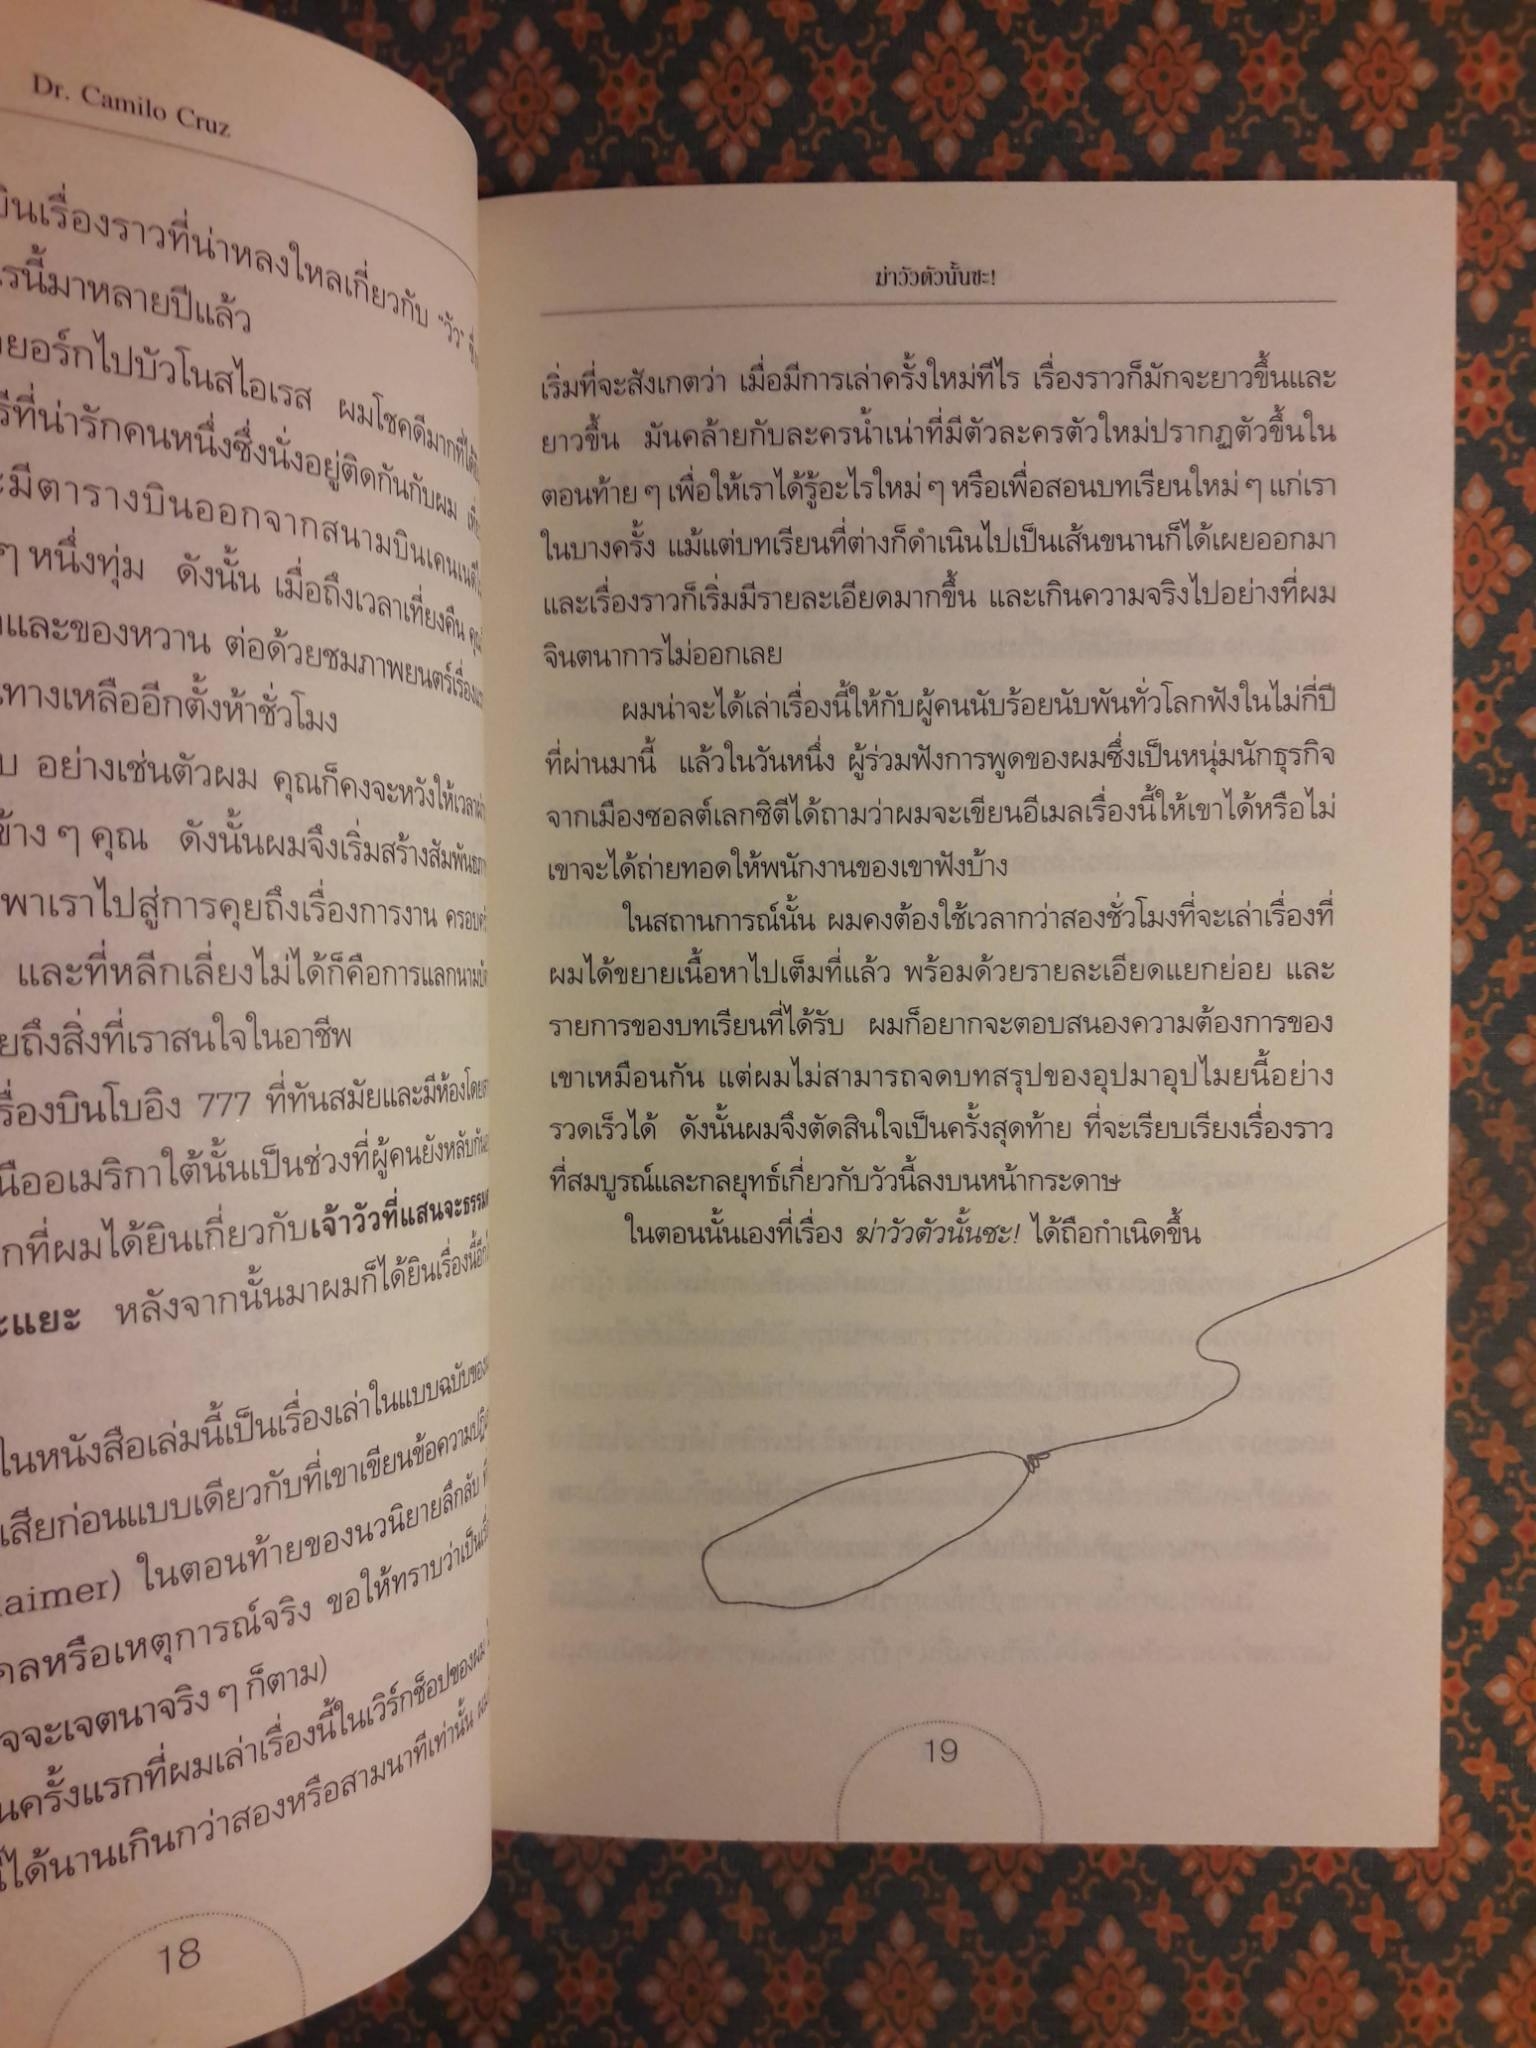 Dr. Camilo Cruz
ยินเรื่องราวที่น่าหลงใหลเกี่ยวกับ "วัว"
รนี้มาหลายปีแล้ว
ยอร์กไปบัวโนสไอเรส ผมโชคดีมากที่ได้
รีที่น่ารักคนหนึ่งซึ่งนั่งอยู่ติดกันกับผม
ะมีตารางบินออกจากสนามบินเคนเนดี
ๆ หนึ่งทุ่ม ดังนั้น เมื่อถึงเวลาเที่ยงคืน
และของหวาน ต่อด้วยชมภาพยนตร์เรื่อง
ทางเหลืออีกตั้งห้าชั่วโมง
บ อย่างเช่นตัวผม คุณก็คงจะหวังให้เวลา
ข้าง ๆ คุณ ดังนั้นผมจึงเริ่มสร้างสัมพันธ
พาเราไปสู่การคุยถึงเรื่องการงาน ครอบครัว
และที่หลีกเลี่ยงไม่ได้ก็คือการแลกนามบัต
ยถึงสิ่งที่เราสนใจในอาชีพ
รื่องบินโบอิง 777 ที่ทันสมัยและมีห้องโดยสาร
นืออเมริกาใต้นั้นเป็นช่วงที่ผู้คนยังหลับกัน
กที่ผมได้ยินเกี่ยวกับเจ้าวัวที่แสนจะธรรม
ะแยะ หลังจากนั้นมาผมก็ได้ยินเรื่องนี้อีก
ในหนังสือเล่มนี้เป็นเรื่องเล่าในแบบฉบับของ
เสียก่อนแบบเดียวกับที่เขาเขียนข้อความปฏิ
laimer) ในตอนท้ายของนวนิยายลึกลับ
คลหรือเหตุการณ์จริง ขอให้ทราบว่าเป็น
จจะเจตนาจริง ๆ ก็ตาม)
นครั้งแรกที่ผมเล่าเรื่องนี้ในเวิร์กช็อปของผม
ได้นานเกินกว่าสองหรือสามนาทีเท่านั้น
18
ฆ่าวัวตัวนั้นซะ!
เริ่มที่จะสังเกตว่า เมื่อมีการเล่าครั้งใหม่ทีไร เรื่องราวก็มักจะยาวขึ้นและ
ยาวขึ้น มันคล้ายกับละครน้ำเน่าที่มีตัวละครตัวใหม่ปรากฏตัวขึ้นใน
ตอนท้าย ๆ เพื่อให้เราได้รู้อะไรใหม่ ๆ หรือเพื่อสอนบทเรียนใหม่ ๆ แก่เรา
ในบางครั้ง แม้แต่บทเรียนที่ต่างก็ดำเนินไปเป็นเส้นขนานก็ได้เผยออกมา
และเรื่องราวก็เริ่มมีรายละเอียดมากขึ้น และเกินความจริงไปอย่างที่ผม
จินตนาการไม่ออกเลย
ผมน่าจะได้เล่าเรื่องนี้ให้กับผู้คนนับร้อยนับพันทั่วโลกฟังในไม่กี่ปี
ที่ผ่านมานี้ แล้วในวันหนึ่ง ผู้ร่วมฟังการพูดของผมซึ่งเป็นหนุ่มนักธุรกิจ
จากเมืองซอลต์เลกซิตีได้ถามว่าผมจะเขียนอีเมลเรื่องนี้ให้เขาได้หรือไม่
เขาจะได้ถ่ายทอดให้พนักงานของเขาฟังบ้าง
ในสถานการณ์นั้น ผมคงต้องใช้เวลากว่าสองชั่วโมงที่จะเล่าเรื่องที่
ผมได้ขยายเนื้อหาไปเต็มที่แล้ว พร้อมด้วยรายละเอียดแยกย่อย และ
รายการของบทเรียนที่ได้รับ ผมก็อยากจะตอบสนองความต้องการของ
เขาเหมือนกัน แต่ผมไม่สามารถจดบทสรุปของอุปมาอุปไมยนี้อย่าง
รวดเร็วได้ ดังนั้นผมจึงตัดสินใจเป็นครั้งสุดท้าย ที่จะเรียบเรียงเรื่องราว
ที่สมบูรณ์และกลยุทธ์เกี่ยวกับวัวนี้ลงบนหน้ากระดาษ
ในตอนนั้นเองที่เรื่อง ฆ่าวัวตัวนั้นซะ! ได้ถือกำเนิดขึ้น
19